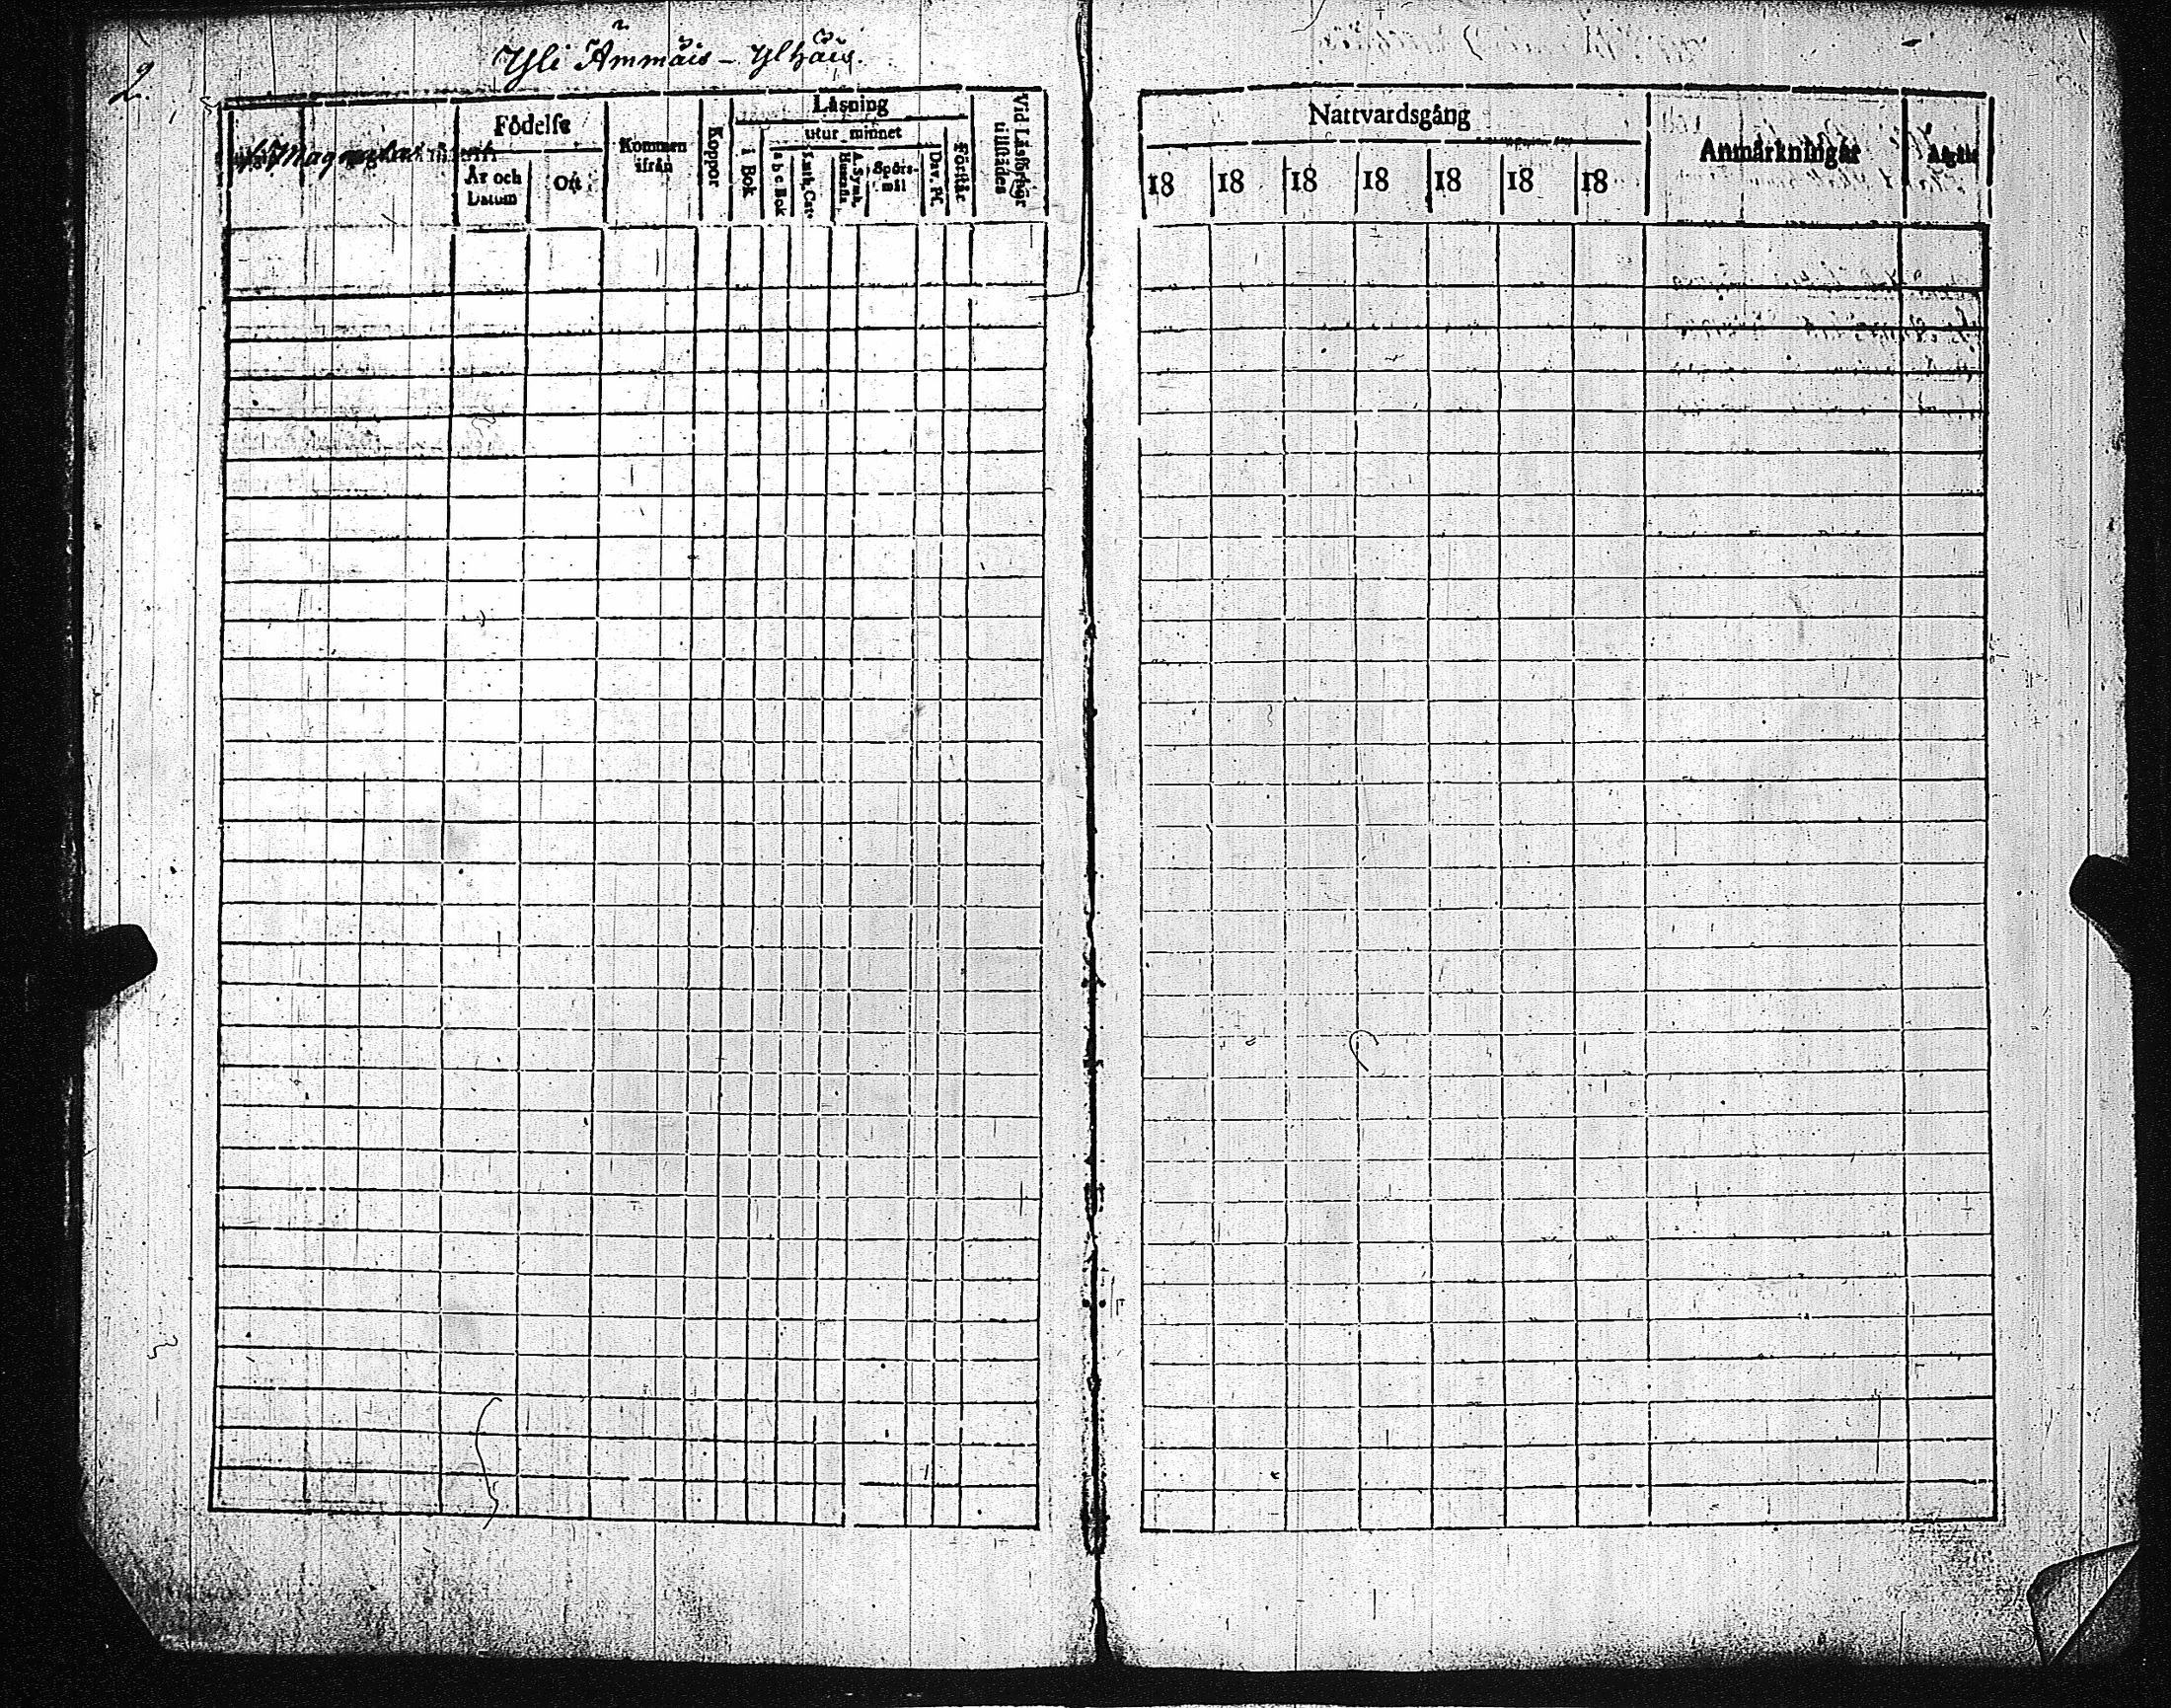 2.
Yli Ämmäis - Ylhäis.
Födelse
År och Datum
Ort
Kommen ifrån
Koppor
Läsning
i Bok
utur minnet
a b c Bok
Luth. Cat.
A. Symb.
Spörs-mål
Dav. Ps.
Förstår
Vid Läsförhör tillstädes
Nattvardsgång
18 18 18 18 18 18 18
Anmärkningar